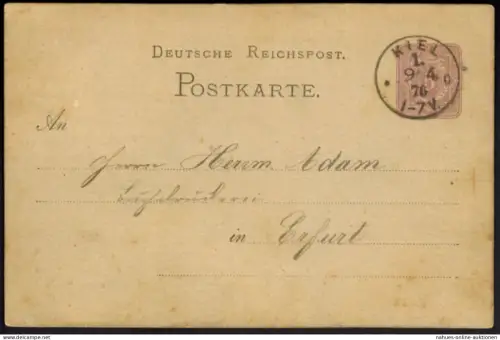 DEUTSCHE REICHSPOST.
POSTKARTE.
KIEL
1.
9 4
76
1-7V.
An
Herrn Herm. Adam
Buchdruckerei
in Erfurt
nahues-online-auktionen